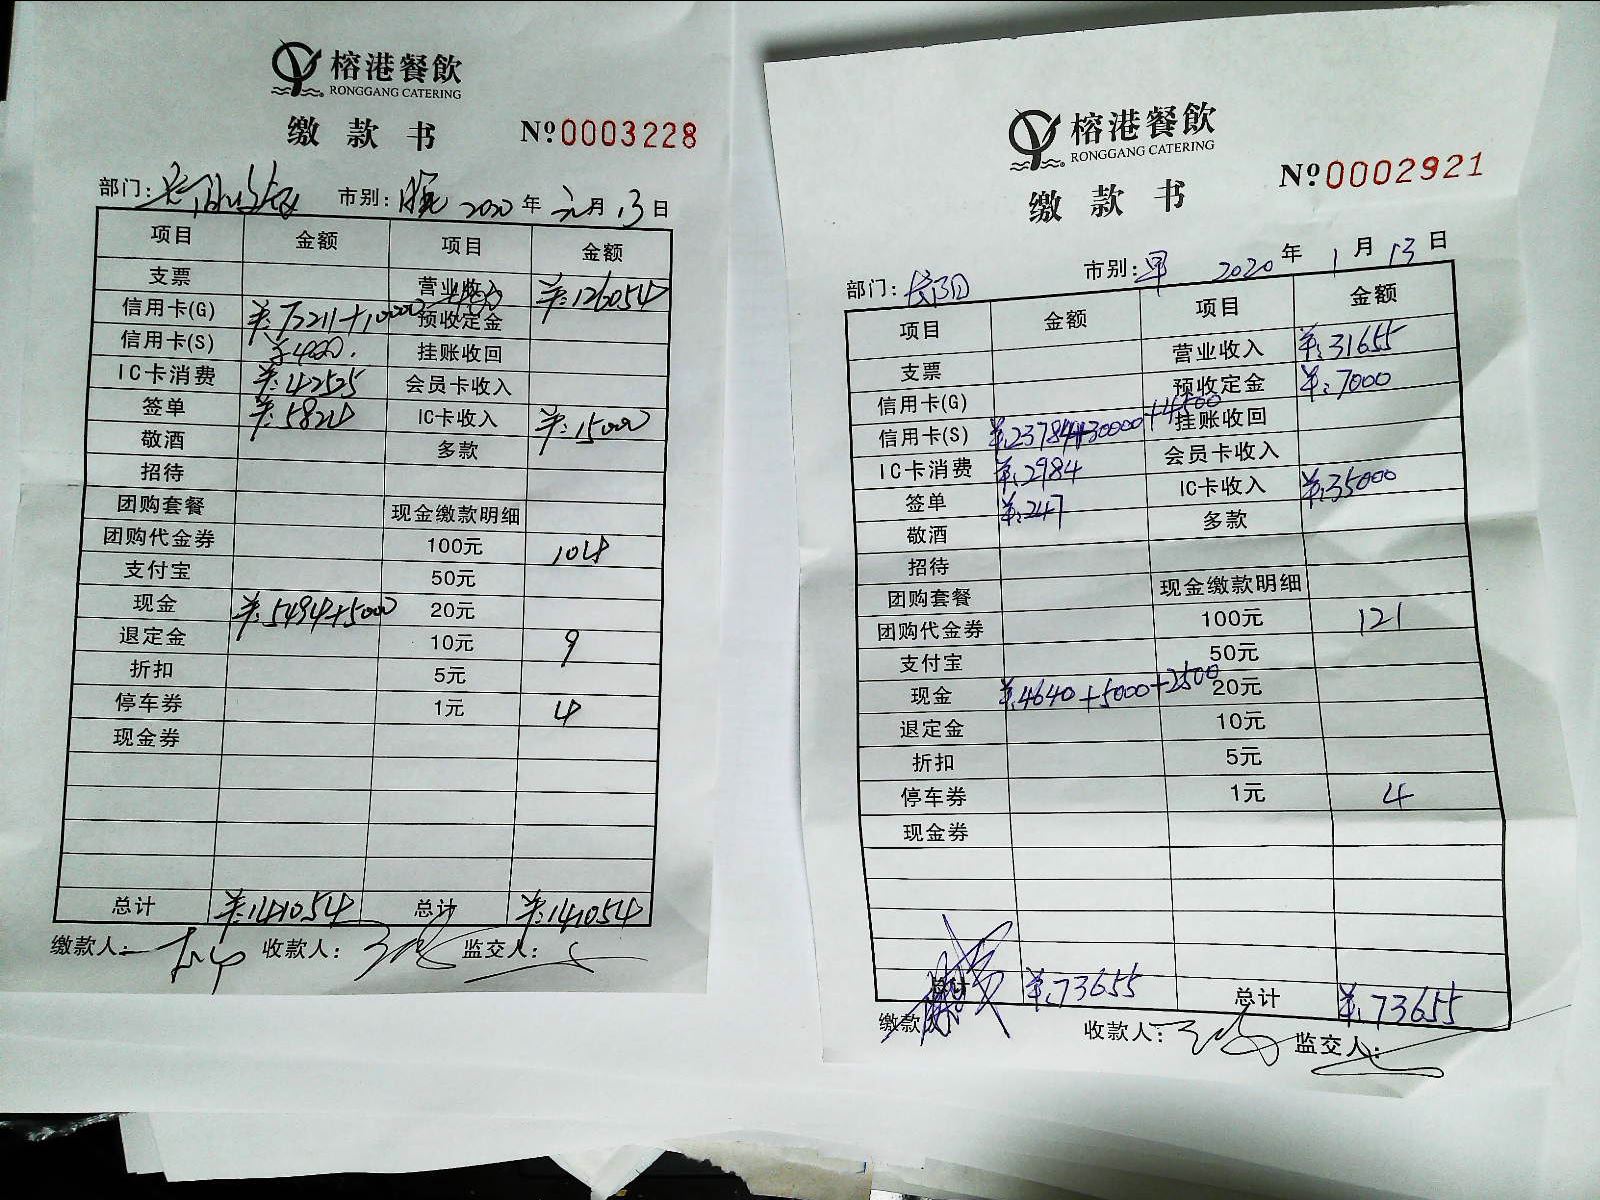 榕港餐飲
RONGGANG CATERING
缴款书 №0003228
部门: 市别:晚 2020年元月13日
项目 金额 项目 金额
支票 营业收入 ¥:126054
信用卡(G) ¥:72211+10000 预收定金
信用卡(S) 挂账收回
IC卡消费 ¥:42525 会员卡收入
签单 ¥:5824 IC卡收入 ¥:15000
敬酒 多款
招待
团购套餐 现金缴款明细
团购代金券 100元 104
支付宝 50元
现金 ¥:5494+5000 20元
退定金 10元 9
折扣 5元
停车券 1元 4
现金券
总计 ¥:141054 总计 ¥:141054
缴款人: 收款人: 监交人:
榕港餐飲
RONGGANG CATERING
缴款书 №0002921
部门:长阳 市别:早 2020年1月13日
项目 金额 项目 金额
支票 营业收入 ¥:31655
信用卡(G) 预收定金 ¥:7000
信用卡(S) ¥:23784+30000+4500 挂账收回
IC卡消费 ¥:2984 会员卡收入
签单 ¥:247 IC卡收入 ¥:35000
敬酒 多款
招待
团购套餐 现金缴款明细
团购代金券 100元 121
支付宝 50元
现金 ¥:4640+5000+2500 20元
退定金 10元
折扣 5元
停车券 1元 4
现金券
总计 ¥:73655 总计 ¥:73655
缴款人 收款人: 监交人: